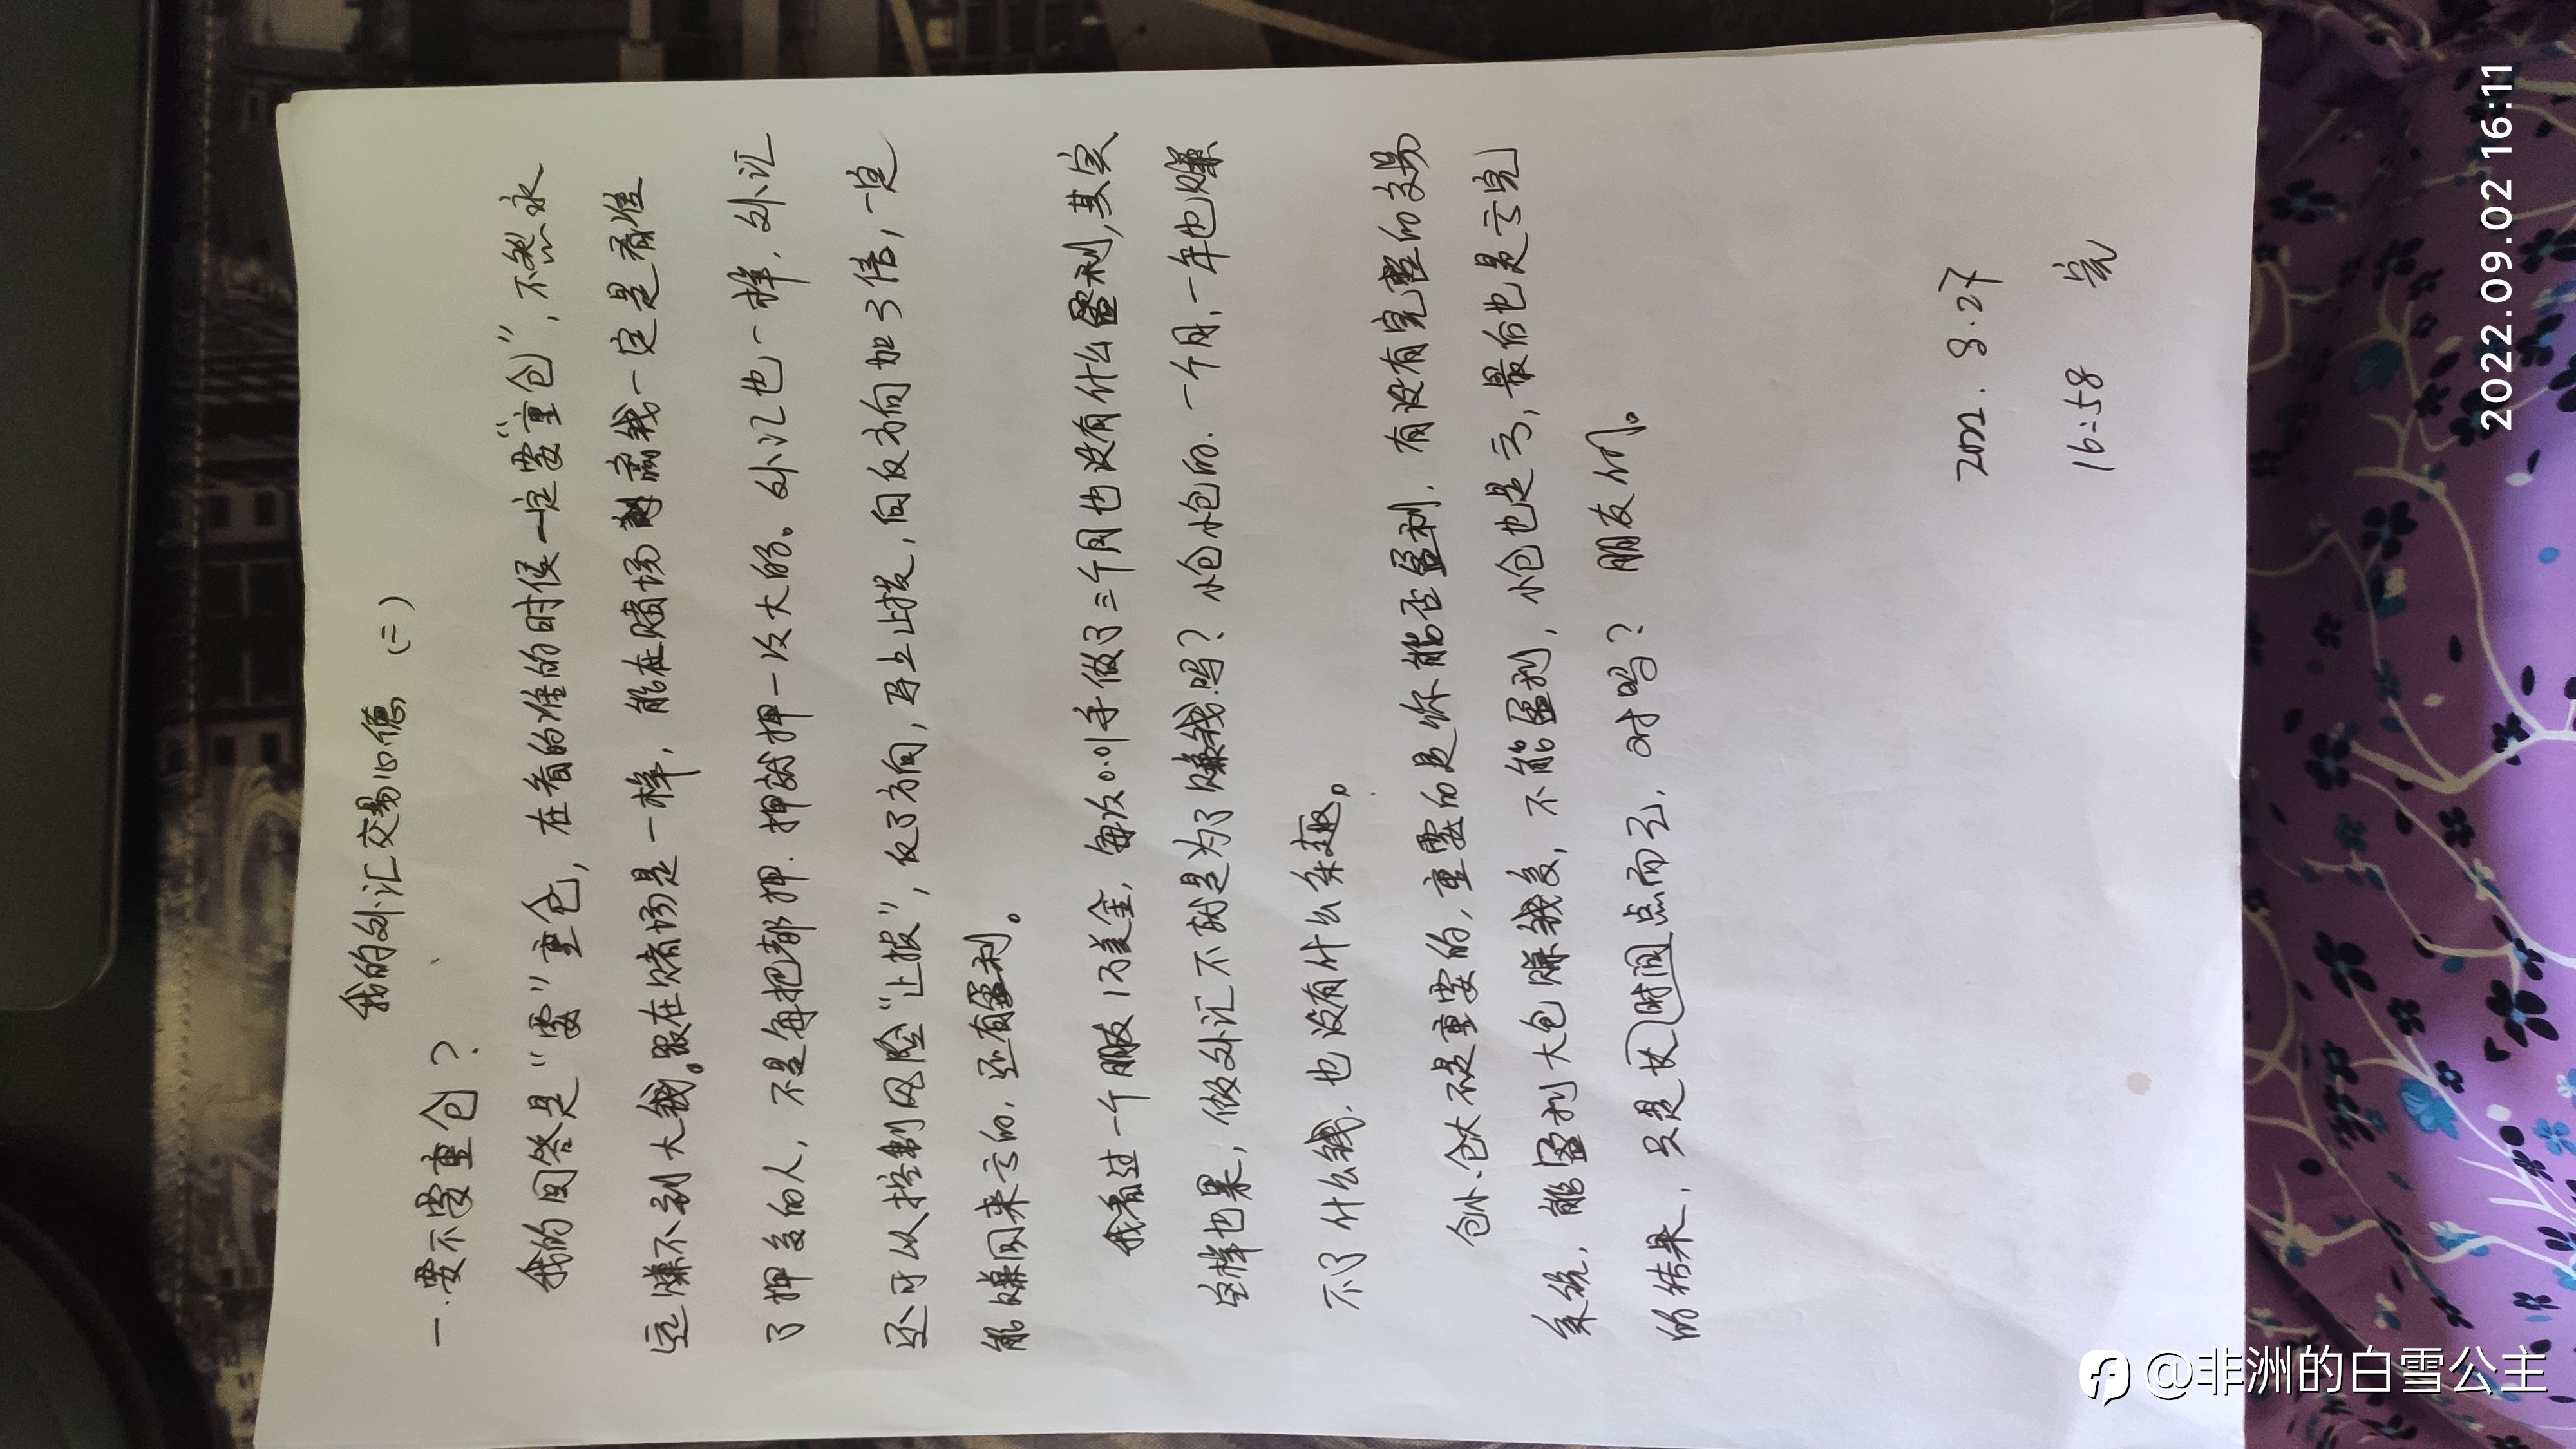 我的外汇交易心德 (二)
一.要不要重仓?
我的回答是"要"重仓,在看的准的时侯一定要"重仓",不然永
远赚不到大钱。跟在赌场是一样,能在赌场赢钱一定是看准
了押多的人,不是每把都押.押就押一次大的。外汇也一样,外汇
还可以控制风险"止损",反了方向,马上止损,向反方向加3倍,一定
能赚回来亏的,还有盈利。
我看过一个朋友1万美金,每次0.01手做了三个月也没有什么盈利,其实
这样也累,做外汇不就是为了赚钱吗?小仓小仓的.一个月,一年也赚
不了什么钱,也没有什么乐趣。
仓小、仓大不是重要的,重要的是你能否盈利.有没有完整的交易
系统,能盈利大仓赚钱多,不能盈利,小仓也是亏,最后也是亏完
的结果,只是时间点而已,对吗?朋友们。
2022.8.27
16:58
2022.09.02 16:11
@非洲的白雪公主